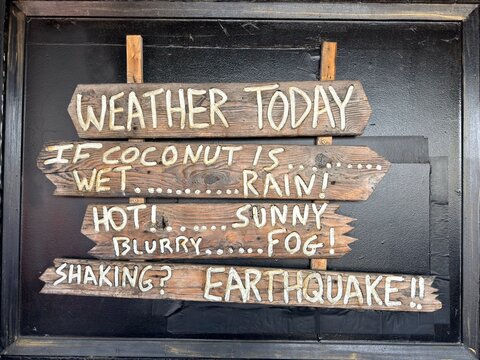 WEATHER TODAY
IF COCONUT IS...........
WET...........RAIN!
HOT!.......SUNNY
BLURRY......FOG!
SHAKING? EARTHQUAKE!!